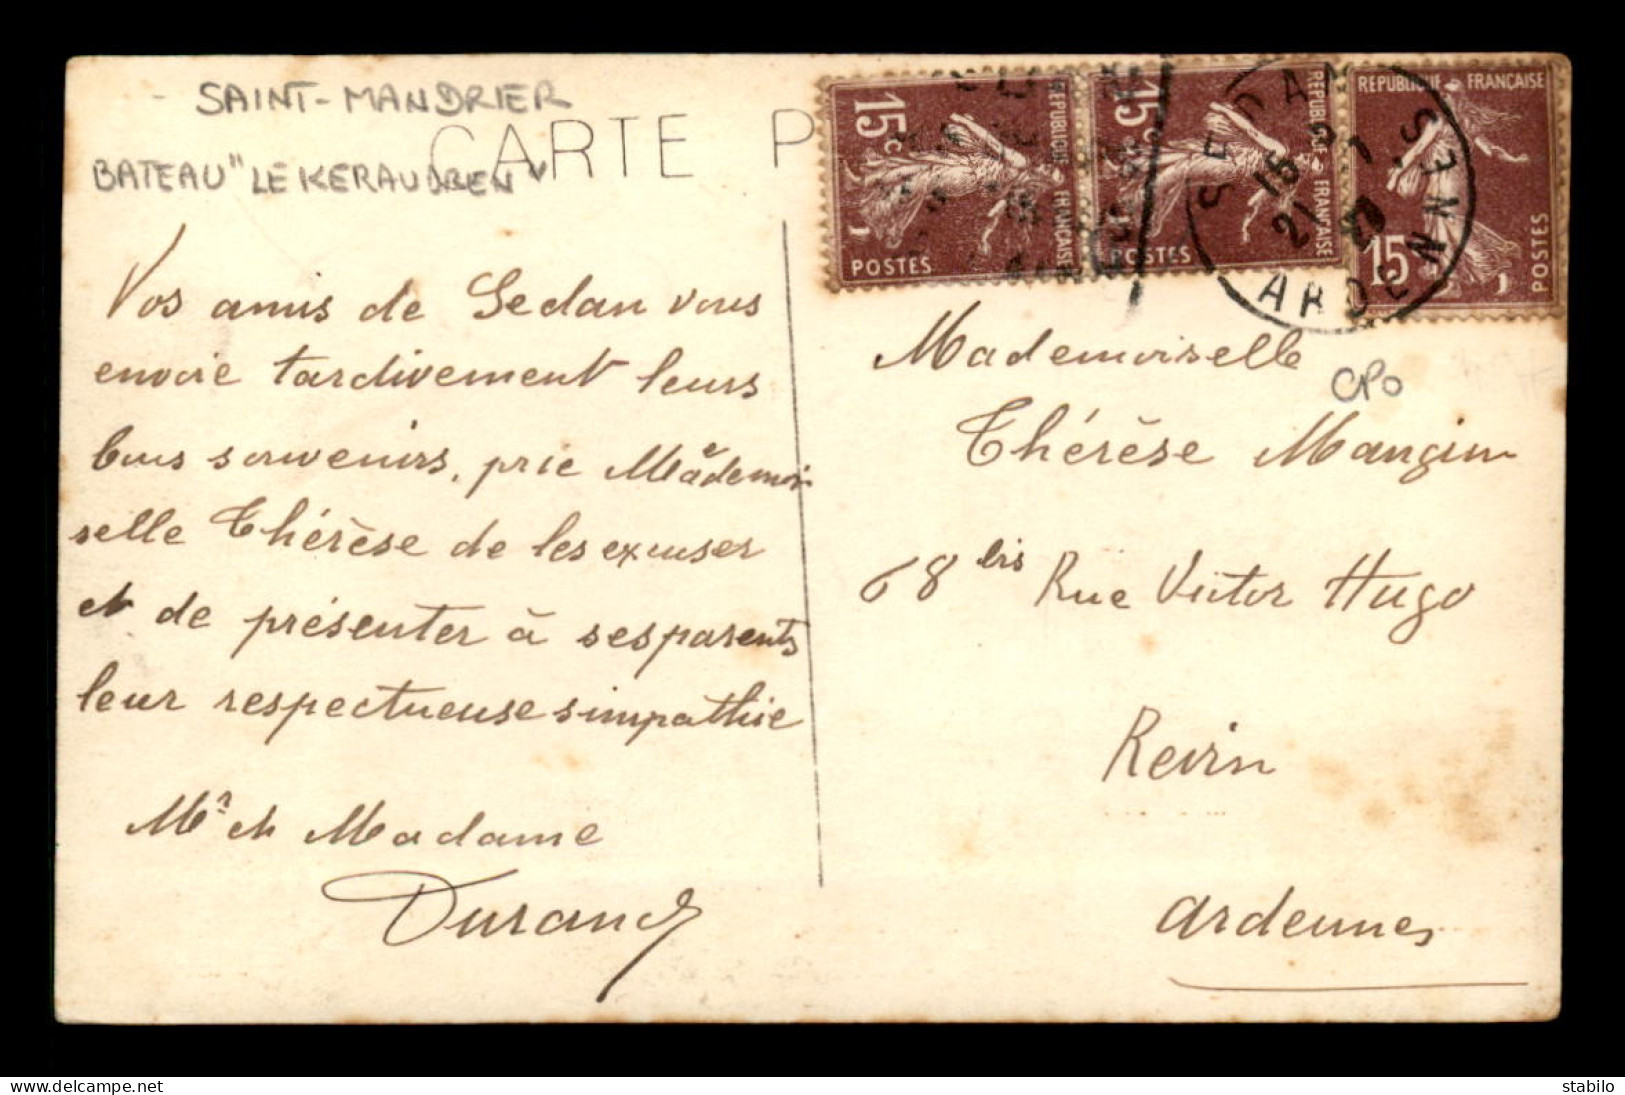 SAINT-MANDRIER
BATEAU "LE KERAUDREN"
CARTE P
15c
POSTES
REPUBLIQUE FRANÇAISE
15c
POSTES
REPUBLIQUE FRANÇAISE
REPUBLIQUE FRANÇAISE
15
POSTES
SEDAN
ARDENNES
Vos amis de Sedan vous
envoie tardivement leurs
bons souvenirs, prie Mademoi
selle Thérèse de les excuser
et de présenter à ses parents
leur respectueuse simpathie
Mr et Madame
Durand
Mademoiselle
CPO
Thérèse Mangin
68 bis Rue Victor Hugo
Revin
Ardennes
stabilo